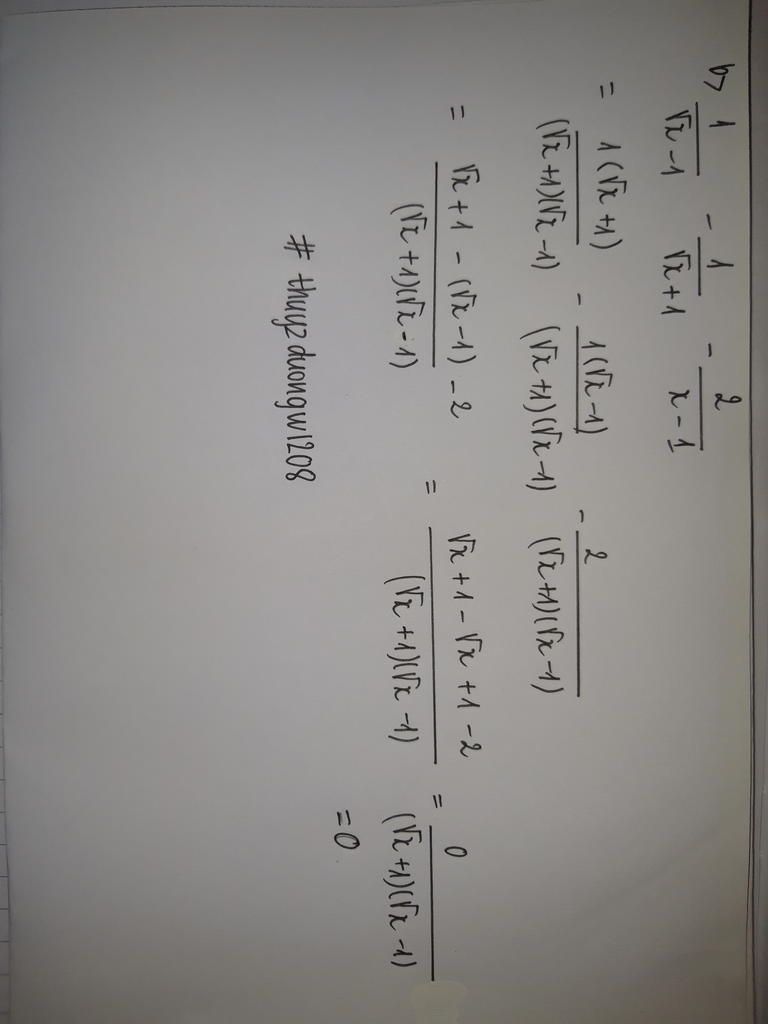 b> 1/(√x-1) - 1/(√x+1) - 2/(x-1)
= 1(√x+1)/((√x+1)(√x-1)) - 1(√x-1)/((√x+1)(√x-1)) - 2/((√x+1)(√x-1))
= (√x+1-(√x-1)-2)/((√x+1)(√x-1)) = (√x+1-√x+1-2)/((√x+1)(√x-1)) = 0/((√x+1)(√x-1))
=0
# thuyzduongw1208